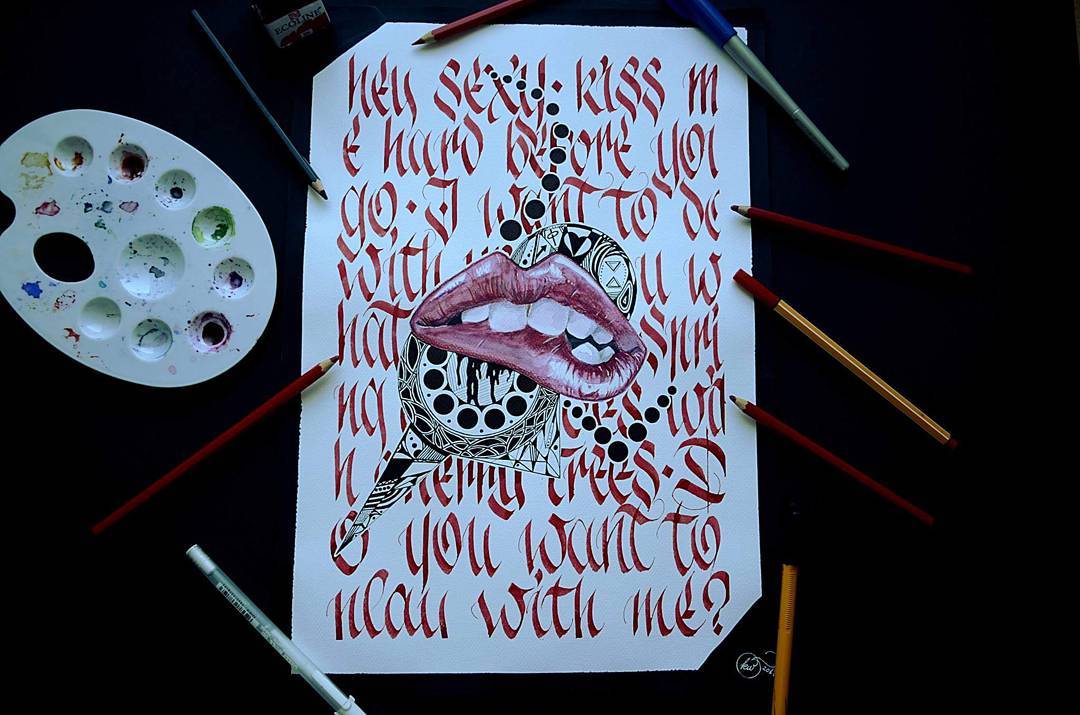 ECOLINE
hey sexy. kiss m
e hard before you
go. I want to de
with u w
hat Spri
ng wa
h cherry trees. D
o you want to
play with me?